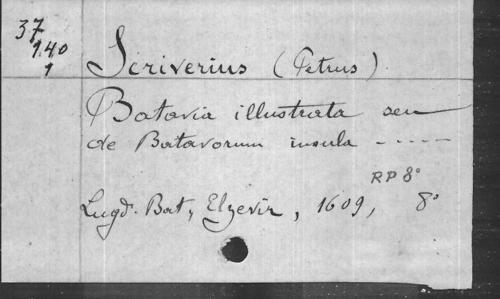 37
940
1
Scriverius (Petrus)
Batavia illustrata seu
de Batavorum insula -----
RP 8°
Lugd. Bat, Elzevir, 1609, 8°